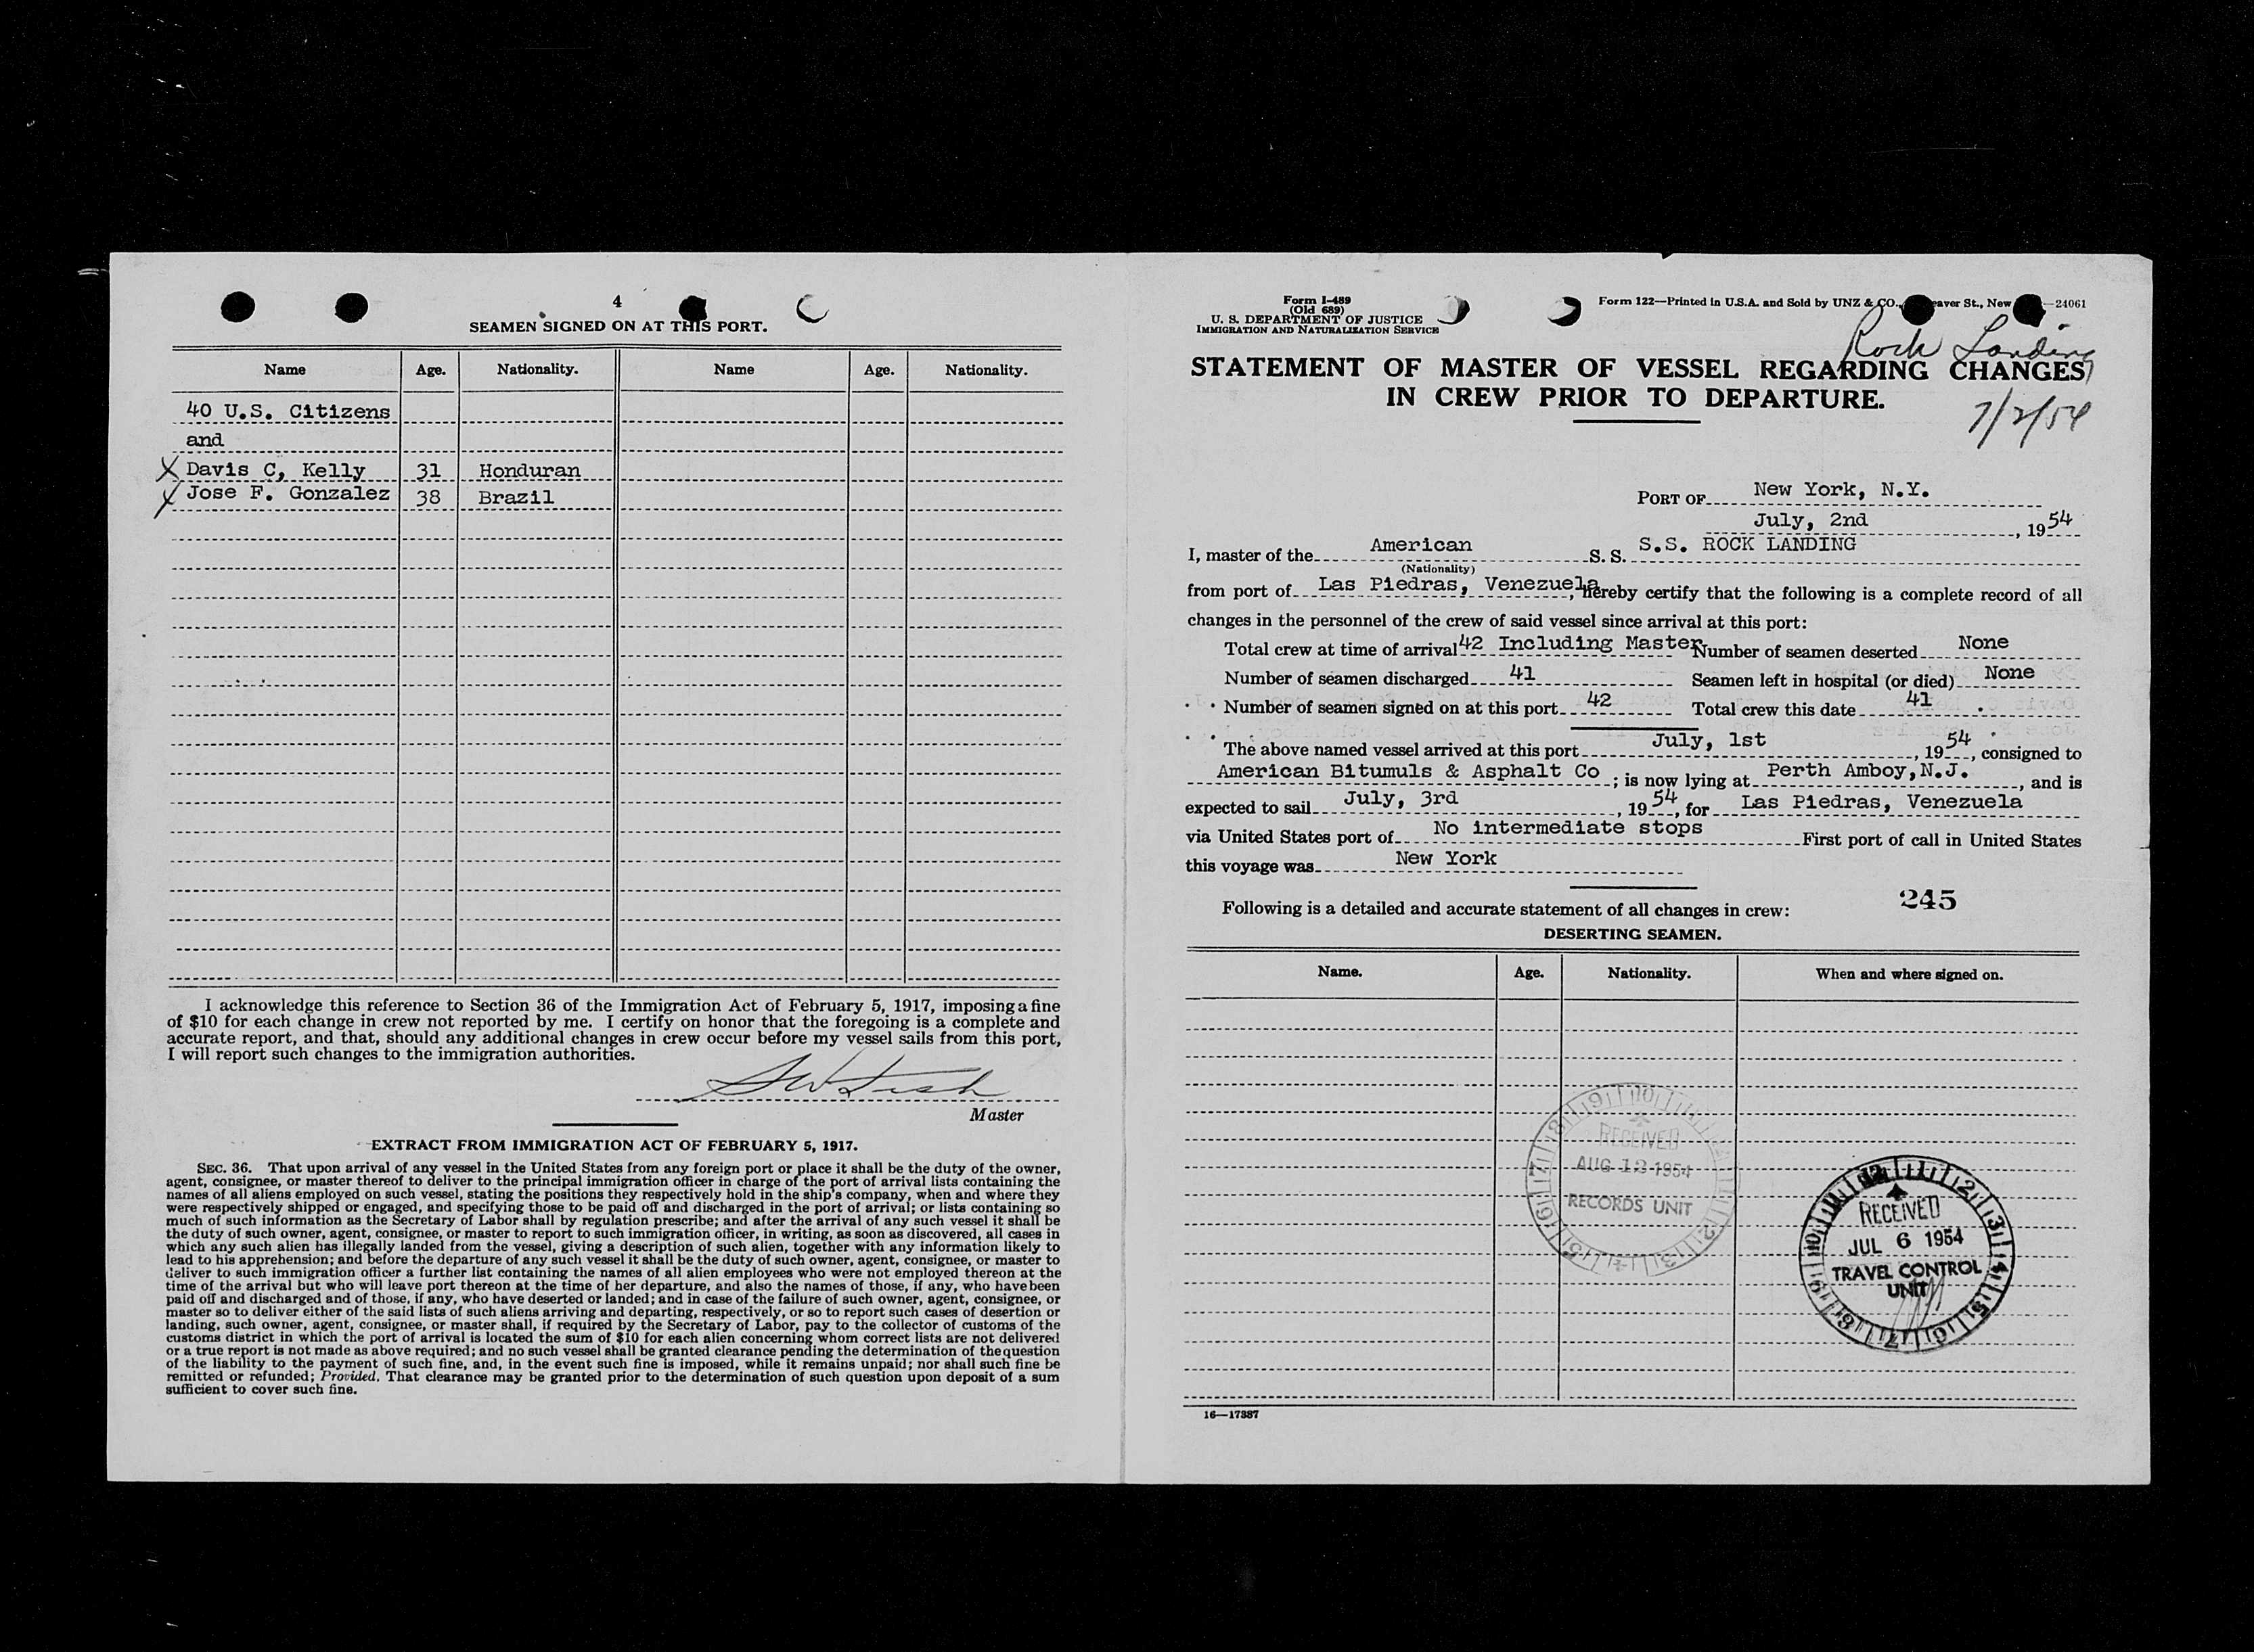 4
SEAMEN SIGNED ON AT THIS PORT.
Name Age. Nationality. Name Age. Nationality.
40 U.S. Citizens
and
X Davis C, Kelly 31 Honduran
X Jose F. Gonzalez 38 Brazil
I acknowledge this reference to Section 36 of the Immigration Act of February 5, 1917, imposing a fine
of $10 for each change in crew not reported by me. I certify on honor that the foregoing is a complete and
accurate report, and that, should any additional changes in crew occur before my vessel sails from this port,
I will report such changes to the immigration authorities.
Master
EXTRACT FROM IMMIGRATION ACT OF FEBRUARY 5, 1917.
SEC. 36. That upon arrival of any vessel in the United States from any foreign port or place it shall be the duty of the owner,
agent, consignee, or master thereof to deliver to the principal immigration officer in charge of the port of arrival lists containing the
names of all aliens employed on such vessel, stating the positions they respectively hold in the ship's company, when and where they
were respectively shipped or engaged, and specifying those to be paid off and discharged in the port of arrival; or lists containing so
much of such information as the Secretary of Labor shall by regulation prescribe; and after the arrival of any such vessel it shall be
the duty of such owner, agent, consignee, or master to report to such immigration officer, in writing, as soon as discovered, all cases in
which any such alien has illegally landed from the vessel, giving a description of such alien, together with any information likely to
lead to his apprehension; and before the departure of any such vessel it shall be the duty of such owner, agent, consignee, or master to
deliver to such immigration officer a further list containing the names of all alien employees who were not employed thereon at the
time of the arrival but who will leave port thereon at the time of her departure, and also the names of those, if any, who have been
paid off and discharged and of those, if any, who have deserted or landed; and in case of the failure of such owner, agent, consignee, or
master so to deliver either of the said lists of such aliens arriving and departing, respectively, or so to report such cases of desertion or
landing, such owner, agent, consignee, or master shall, if required by the Secretary of Labor, pay to the collector of customs of the
customs district in which the port of arrival is located the sum of $10 for each alien concerning whom correct lists are not delivered
or a true report is not made as above required; and no such vessel shall be granted clearance pending the determination of the question
of the liability to the payment of such fine, and, in the event such fine is imposed, while it remains unpaid; nor shall such fine be
remitted or refunded; Provided, That clearance may be granted prior to the determination of such question upon deposit of a sum
sufficient to cover such fine.
Form I-489
(Old 689)
U. S. DEPARTMENT OF JUSTICE
IMMIGRATION AND NATURALIZATION SERVICE
Form 122—Printed in U.S.A. and Sold by UNZ & CO., eaver St., New —24061
Rock Landing
STATEMENT OF MASTER OF VESSEL REGARDING CHANGES
IN CREW PRIOR TO DEPARTURE.
7/2/54
PORT OF New York, N.Y.
July, 2nd, 1954
I, master of the American S. S. S.S. ROCK LANDING
(Nationality)
from port of Las Piedras, Venezuela, hereby certify that the following is a complete record of all
changes in the personnel of the crew of said vessel since arrival at this port:
Total crew at time of arrival 42 Including Master Number of seamen deserted None
Number of seamen discharged 41 Seamen left in hospital (or died) None
Number of seamen signed on at this port 42 Total crew this date 41
The above named vessel arrived at this port July, 1st, 1954, consigned to
American Bitumuls & Asphalt Co; is now lying at Perth Amboy, N.J., and is
expected to sail July, 3rd, 1954, for Las Piedras, Venezuela
via United States port of No intermediate stops First port of call in United States
this voyage was New York
245
Following is a detailed and accurate statement of all changes in crew:
DESERTING SEAMEN.
Name. Age. Nationality. When and where signed on.
RECEIVED
AUG 12 1954
RECORDS UNIT
RECEIVED
JUL 6 1954
TRAVEL CONTROL
UNIT
16—17387